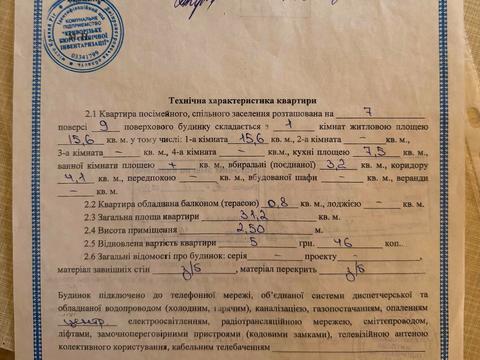 КОМУНАЛЬНЕ
ПІДПРИЄМСТВО
"КРИВОРІЗЬКЕ
БЮРО ТЕХНІЧНОЇ
ІНВЕНТАРИЗАЦІЇ"
03341799
Технічна характеристика квартири
2.1 Квартира посімейного, спільного заселення розташована на 7
поверсі 9 поверхового будинку складається з 1 кімнат житловою площею
15,6 кв. м. у тому числі: 1-а кімната 15,6 кв. м., 2-а кімната – кв. м.,
3-а кімната – кв. м., 4-а кімната – кв. м., кухні площею 7,5 кв. м.,
ванної кімнати площею + кв. м., вбиральні (поєднаної) 3,2 кв. м., коридору
4,1 кв. м., передпокою – кв. м., вбудованої шафи – кв. м., веранди
– кв. м.
2.2 Квартира обладнана балконом (терасою) 0,8 кв. м., лоджією – кв. м.
2.3 Загальна площа квартири 31,2 кв. м.
2.4 Висота приміщення 2,50 м.
2.5 Відновлена вартість квартири 5 грн. 46 коп..
2.6 Загальні відомості про будинок: серія – проекту –,
матеріал завнішніх стін з/б, матеріал перекрить з/б
Будинок підключено до телефонної мережі, об'єднаної системи диспетчерської та
обладнаної водопроводом (холодним, гарячим), каналізацією, газопостачанням, опаленням
центр електроосвітленням, радіотрансляційною мережею, сміттєпроводом,
ліфтами, замочнопереговорними пристроями (кодовими замками), телевізійною антеною
колективного користування, кабельним телебаченням